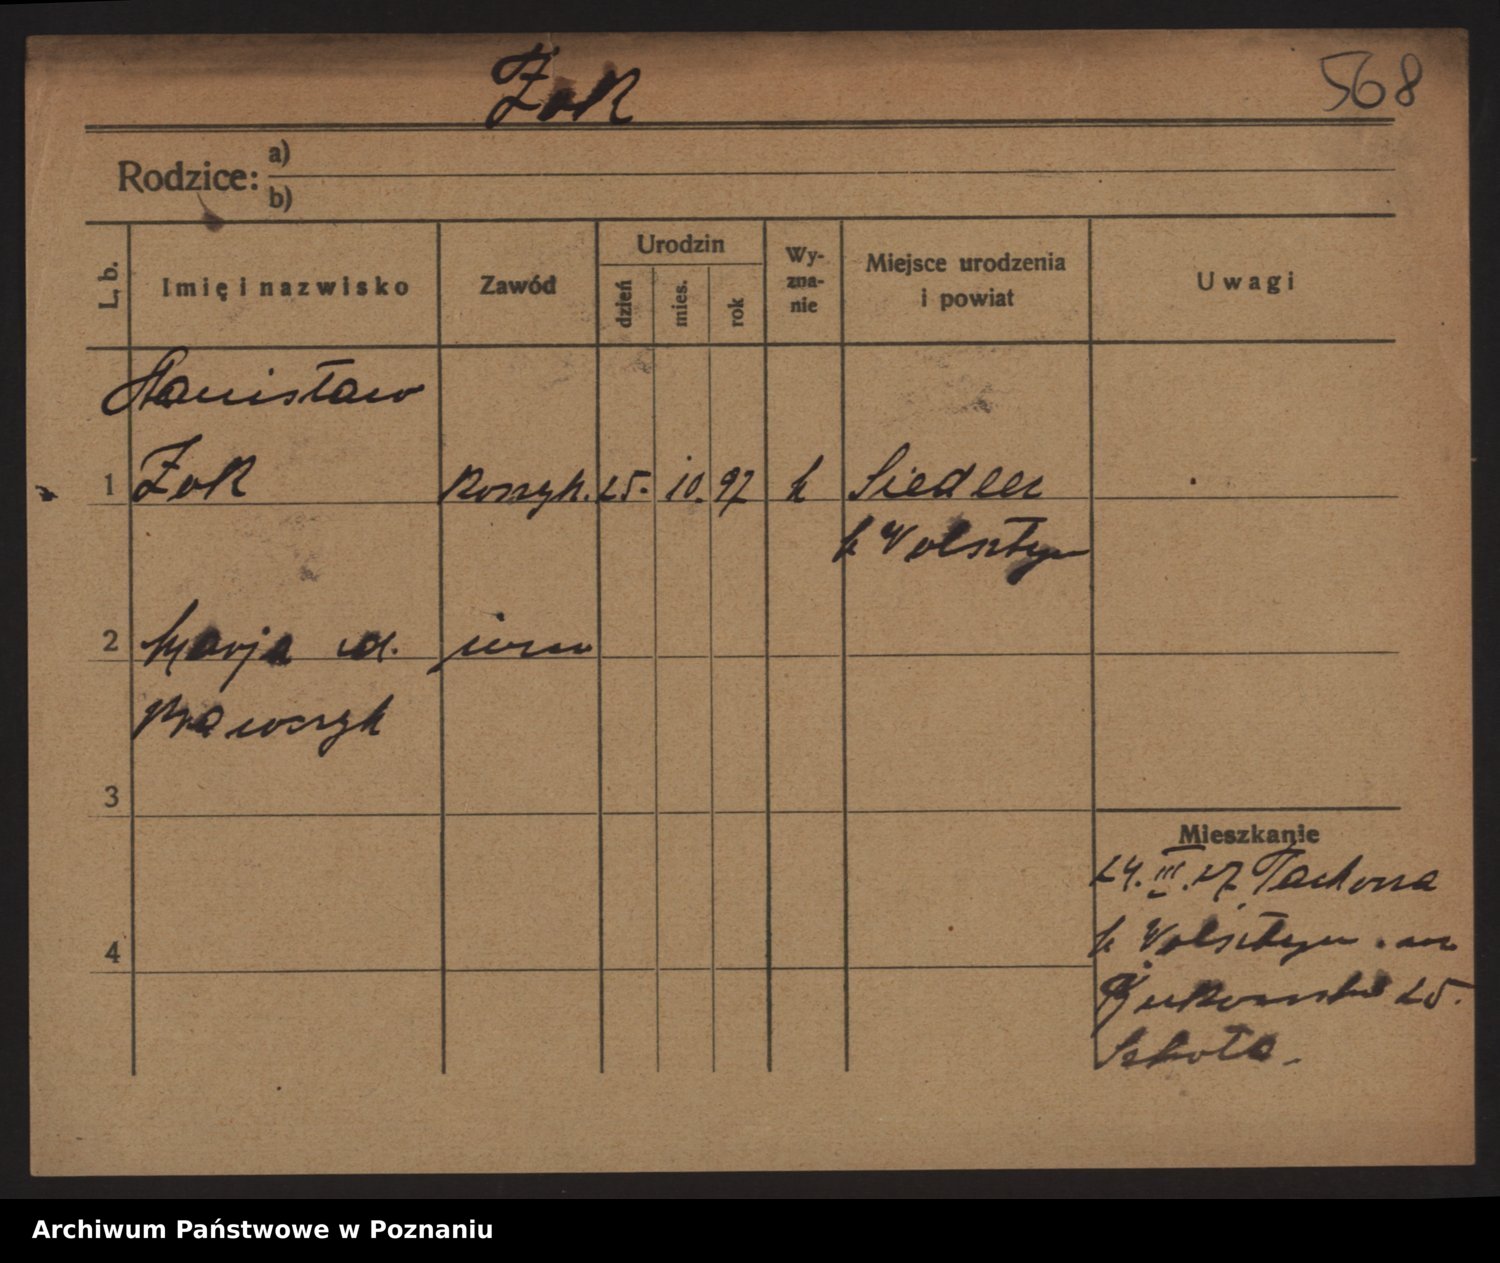 Żok
568
Rodzice: a)
b)
L. b.
Imię i nazwisko
Zawód
Urodzin
dzień
mies.
rok
Wy-
zna-
nie
Miejsce urodzenia
i powiat
Uwagi
Stanisław
1 Żok 25. 10. 97 k Siedlec
k Wolsztyn
2 Marja
3
4
Mieszkanie
24. III. 27
k Wolsztyn
25.
Szkoła.
Archiwum Państwowe w Poznaniu